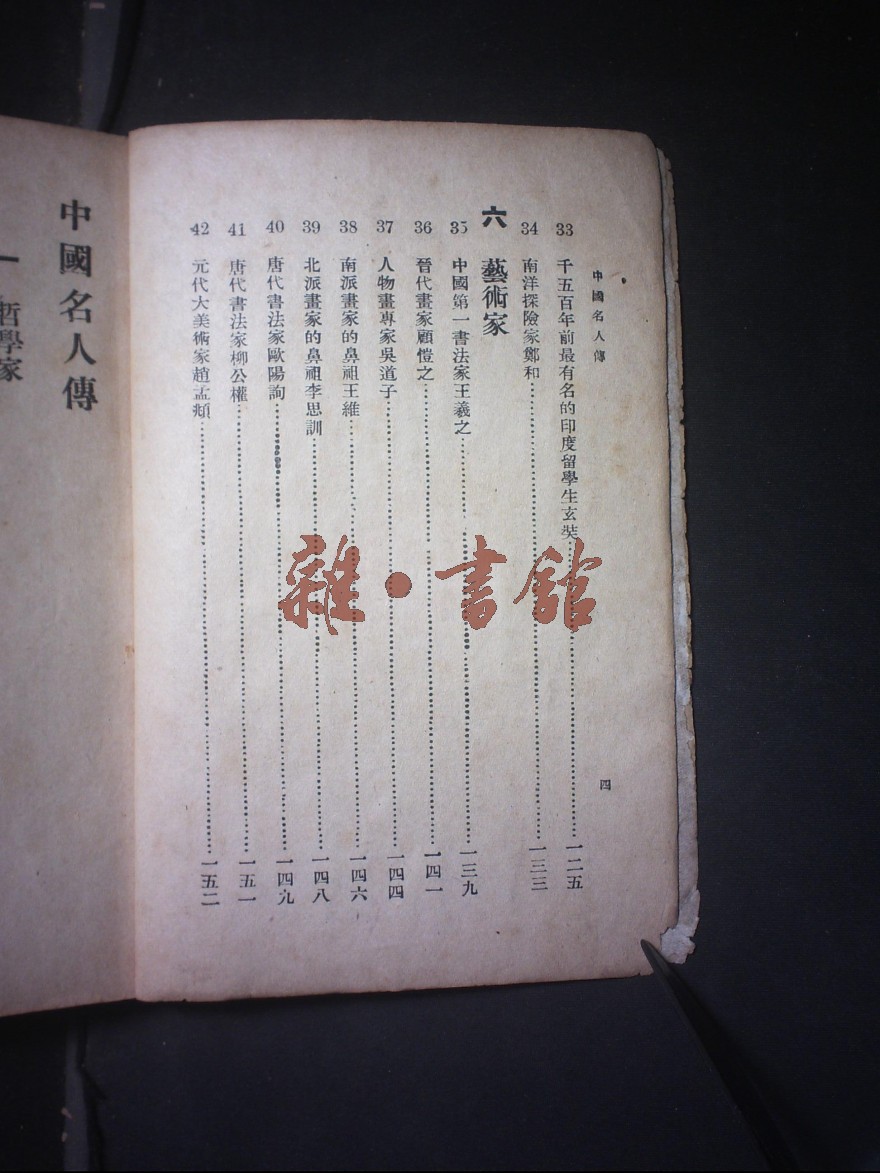 中國名人傳
四
33 千五百年前最有名的印度留學生玄奘……一二五
34 南洋探險家鄭和……一三三
六 藝術家
35 中國第一書法家王羲之……一三九
36 晉代畫家顧愷之……一四一
37 人物畫專家吳道子……一四四
38 南派畫家的鼻祖王維……一四六
39 北派畫家的鼻祖李思訓……一四八
40 唐代書法家歐陽詢……一四九
41 唐代書法家柳公權……一五一
42 元代大美術家趙孟頫……一五二
中國名人傳
一 哲學家
雜·書館